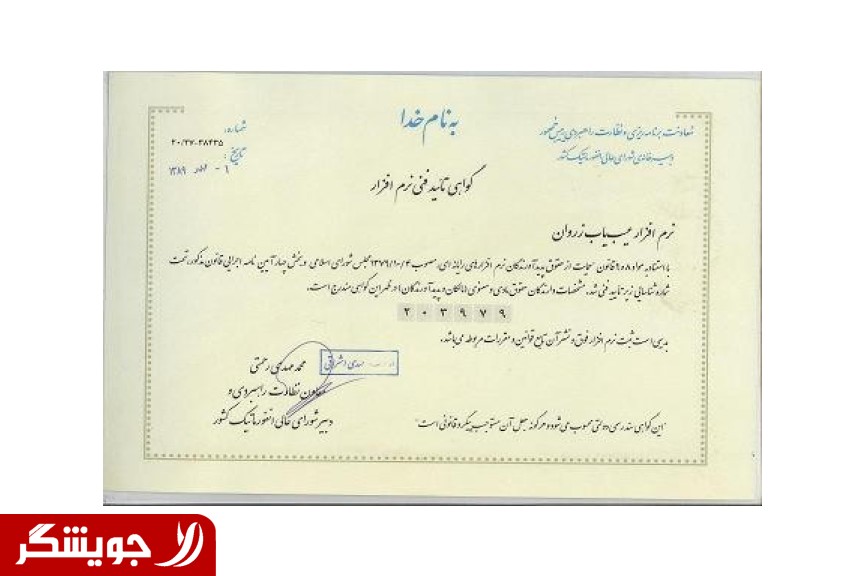 به نام خدا
معاونت برنامه ریزی و نظارت راهبردی رییس جمهور
دبیرخانه‌ی شورای عالی انفورماتیک کشور
شماره:
۲۰/۳۷-۳۸۴۳۵
تاریخ:
۱۳۸۹
گواهی تائید فنی نرم افزار
نرم افزار عیب یاب زروان
با استناد به مواد ۸ و ۹ قانون حمایت از حقوق پدیدآورندگان نرم افزارهای رایانه ای، مصوب ۱۳۷۹/۱۰/۴ مجلس شورای اسلامی و بخش چهار آیین نامه اجرایی قانون مذکور، تحت
شماره شناسایی زیر تایید فنی شد. مشخصات دارندگان حقوق مادی و معنوی (مالکان و پدیدآورندگان) در ظهر این گواهی مندرج است.
۲۰۳۹۷۹
بدیهی است ثبت نرم افزار فوق و نشر آن تابع قوانین و مقررات مربوطه می‌باشد.
مهدی اشراقی
محمد مهدی رحمتی
معاون نظارت راهبردی و
دبیر شورای عالی انفورماتیک کشور
"این گواهی سند رسمی دولتی محسوب می شود و هر گونه جعل آن مستوجب پیگرد قانونی است"
جویشگر